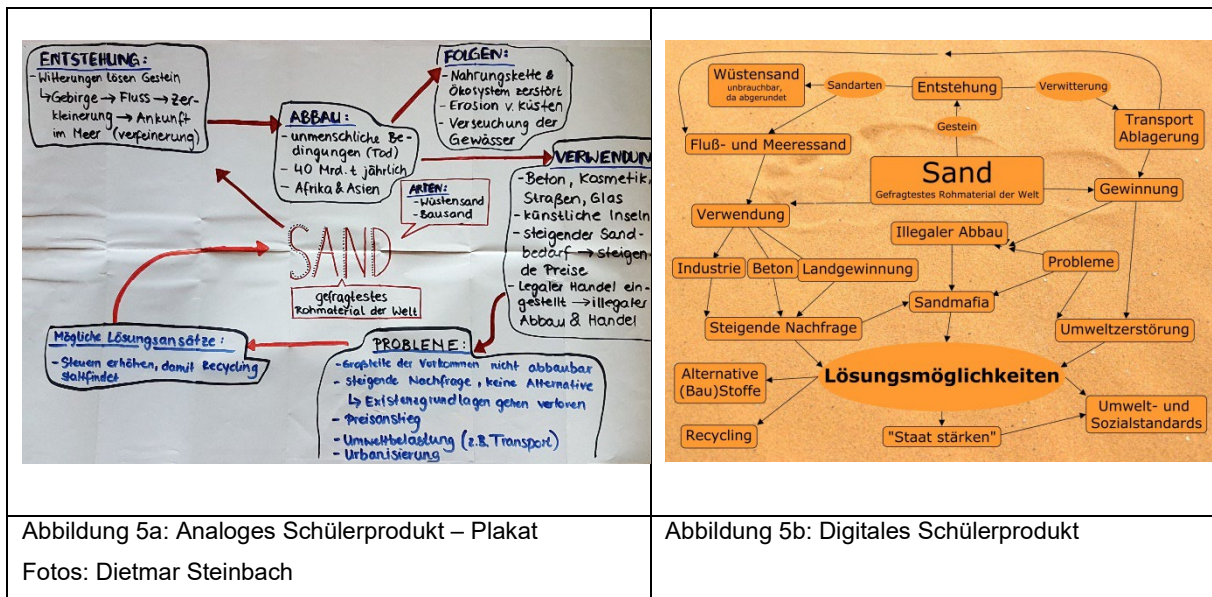 ENTSTEHUNG:
- Witterungen lösen Gestein
↳ Gebirge → Fluss → Zer-
kleinerung → Ankunft
im Meer (verfeinerung)
ABBAU:
- unmenschliche Be-
dingungen (Tod)
- 40 Mrd. t jährlich
- Afrika & Asien
FOLGEN:
- Nahrungskette &
Ökosystem zerstört
- Erosion v. Küsten
- Verseuchung der
Gewässer
VERWENDUN
- Beton, Kosmetik,
Straßen, Glas
- künstliche Inseln
- steigender Sand-
bedarf → steigen-
de Preise
- Legaler Handel ein-
gestellt → illegaler
Abbau & Handel
ARTEN:
- Wüstensand
- Bausand
SAND
gefragtestes
Rohmaterial der Welt
Mögliche Lösungsansätze:
- Steuern erhöhen, damit Recycling
stattfindet
PROBLEME:
- Großteile der Vorkommen nicht abbaubar
- steigende Nachfrage, keine Alternative
↳ Existenzgrundlagen gehen verloren
- Preisanstieg
- Umweltbelastung (z.B. Transport)
- Urbanisierung
Wüstensand
unbrauchbar,
da abgerundet
Sandarten
Entstehung
Verwitterung
Transport
Ablagerung
Gestein
Fluß- und Meeressand
Sand
Gefragtestes Rohmaterial der Welt
Gewinnung
Verwendung
Illegaler Abbau
Probleme
Industrie
Beton
Landgewinnung
Sandmafia
Steigende Nachfrage
Umweltzerstörung
Lösungsmöglichkeiten
Alternative
(Bau)Stoffe
Recycling
"Staat stärken"
Umwelt- und
Sozialstandards
Abbildung 5a: Analoges Schülerprodukt – Plakat
Fotos: Dietmar Steinbach
Abbildung 5b: Digitales Schülerprodukt